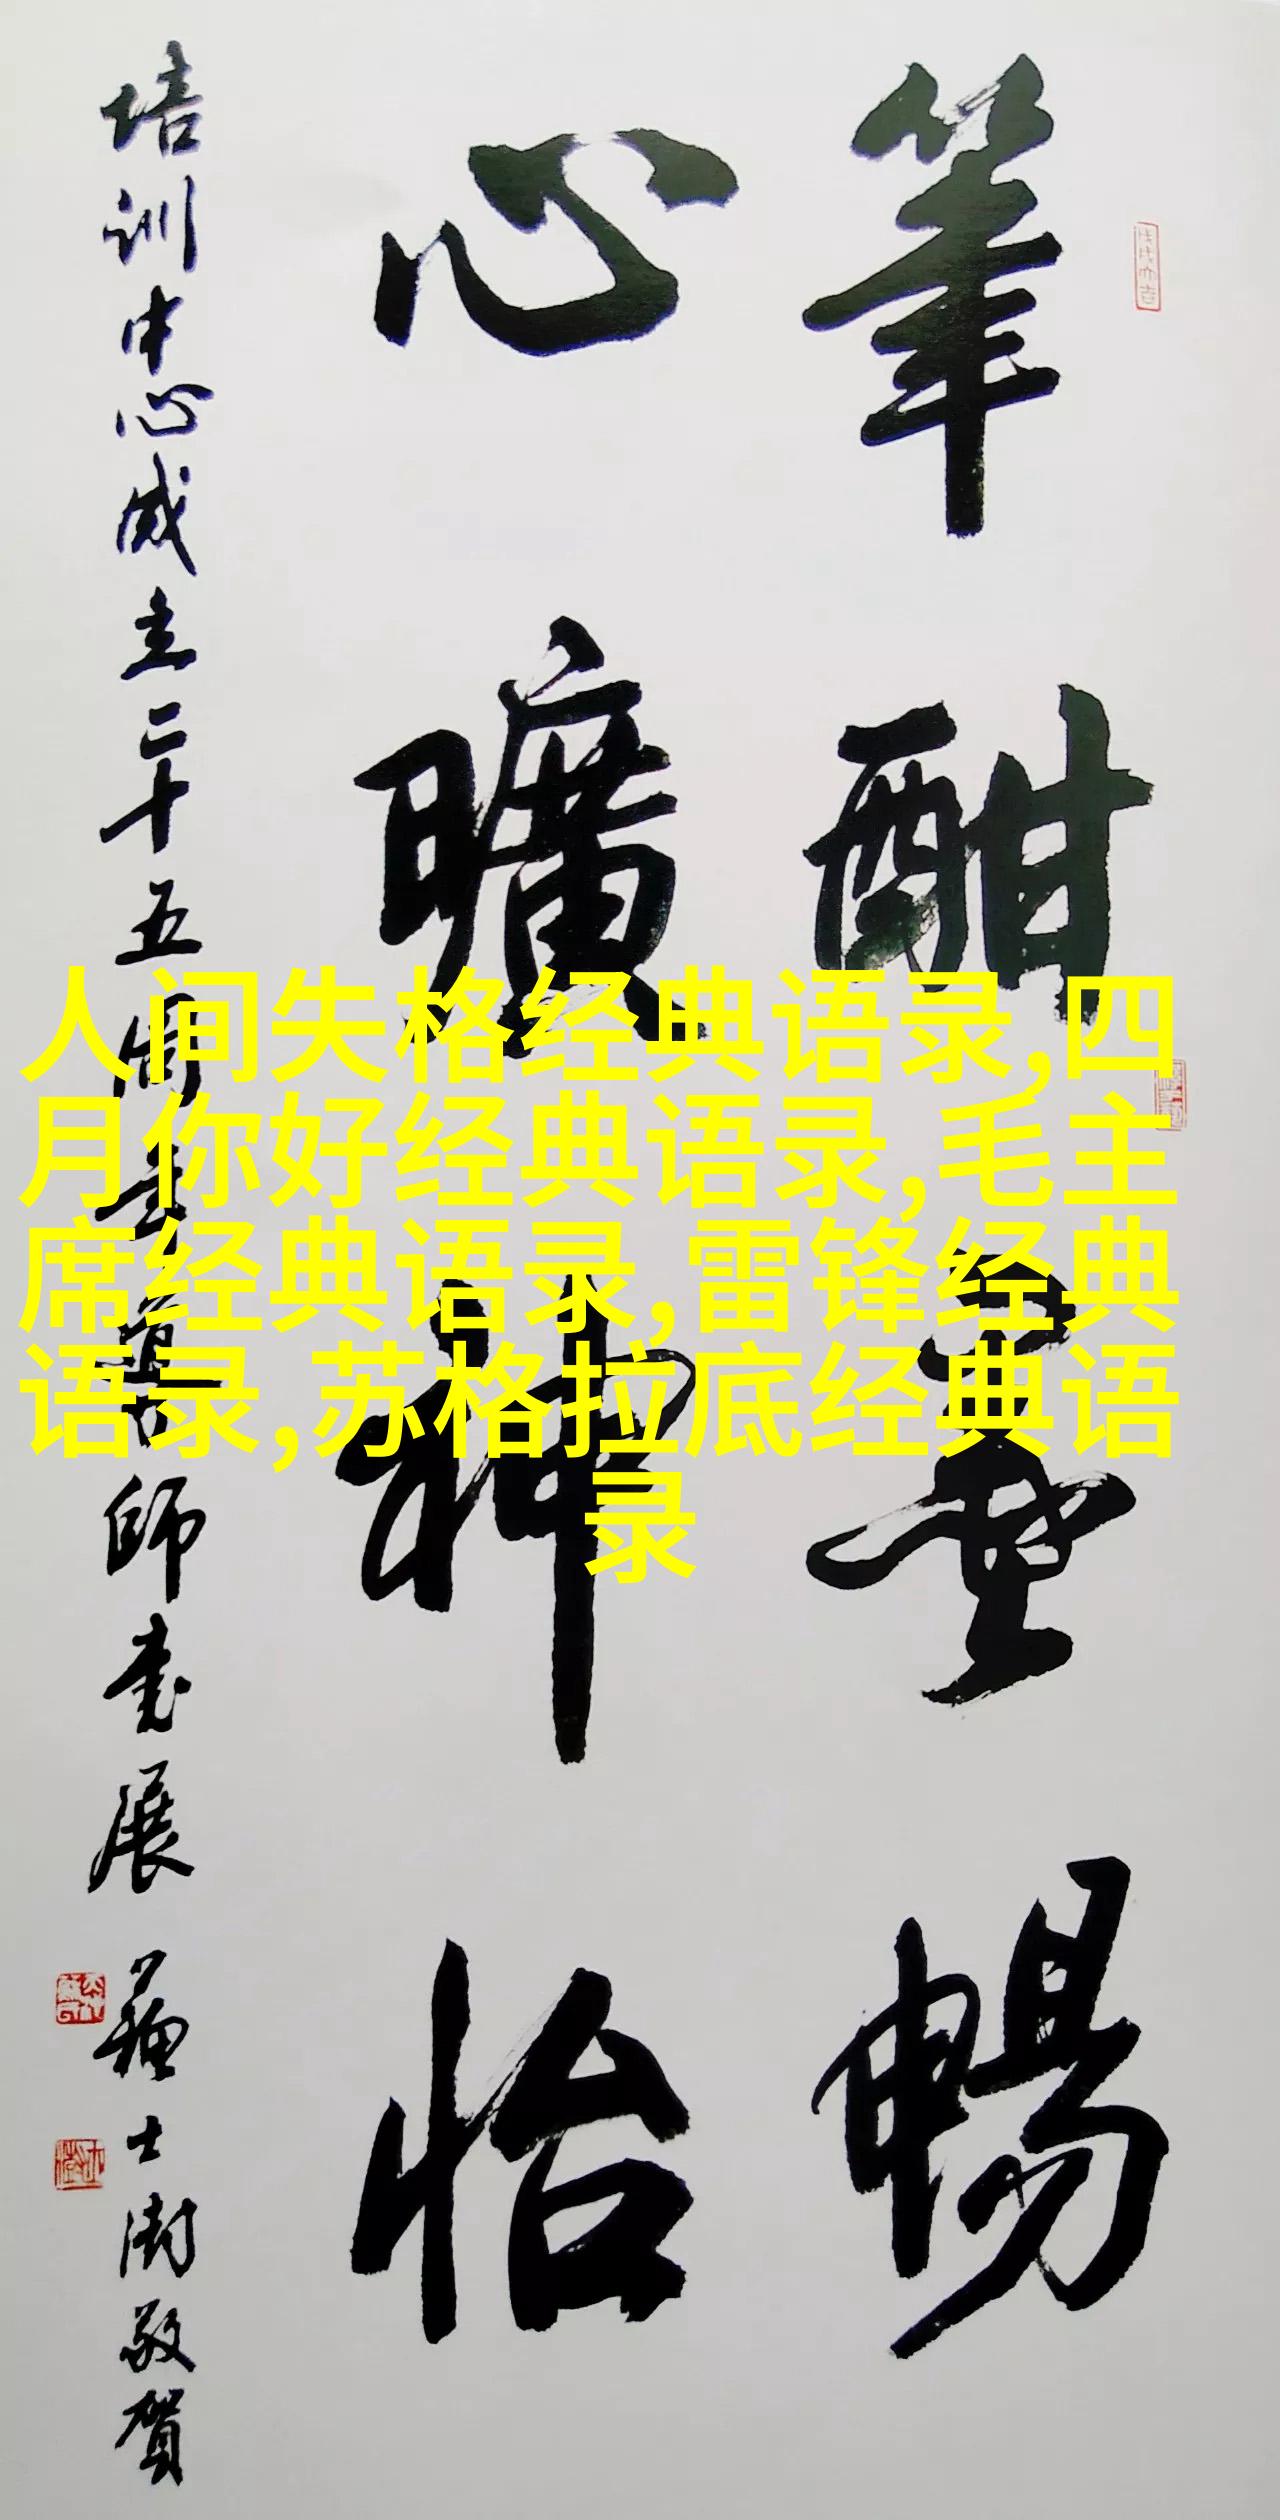 筆酣墨暢
心曠神怡
培训中心成立二十五周年導师書展
蘇士澍敬賀
人间失格经典语录,四
月你好经典语录,毛主
席经典语录,雷锋经典
语录,苏格拉底经典语
录